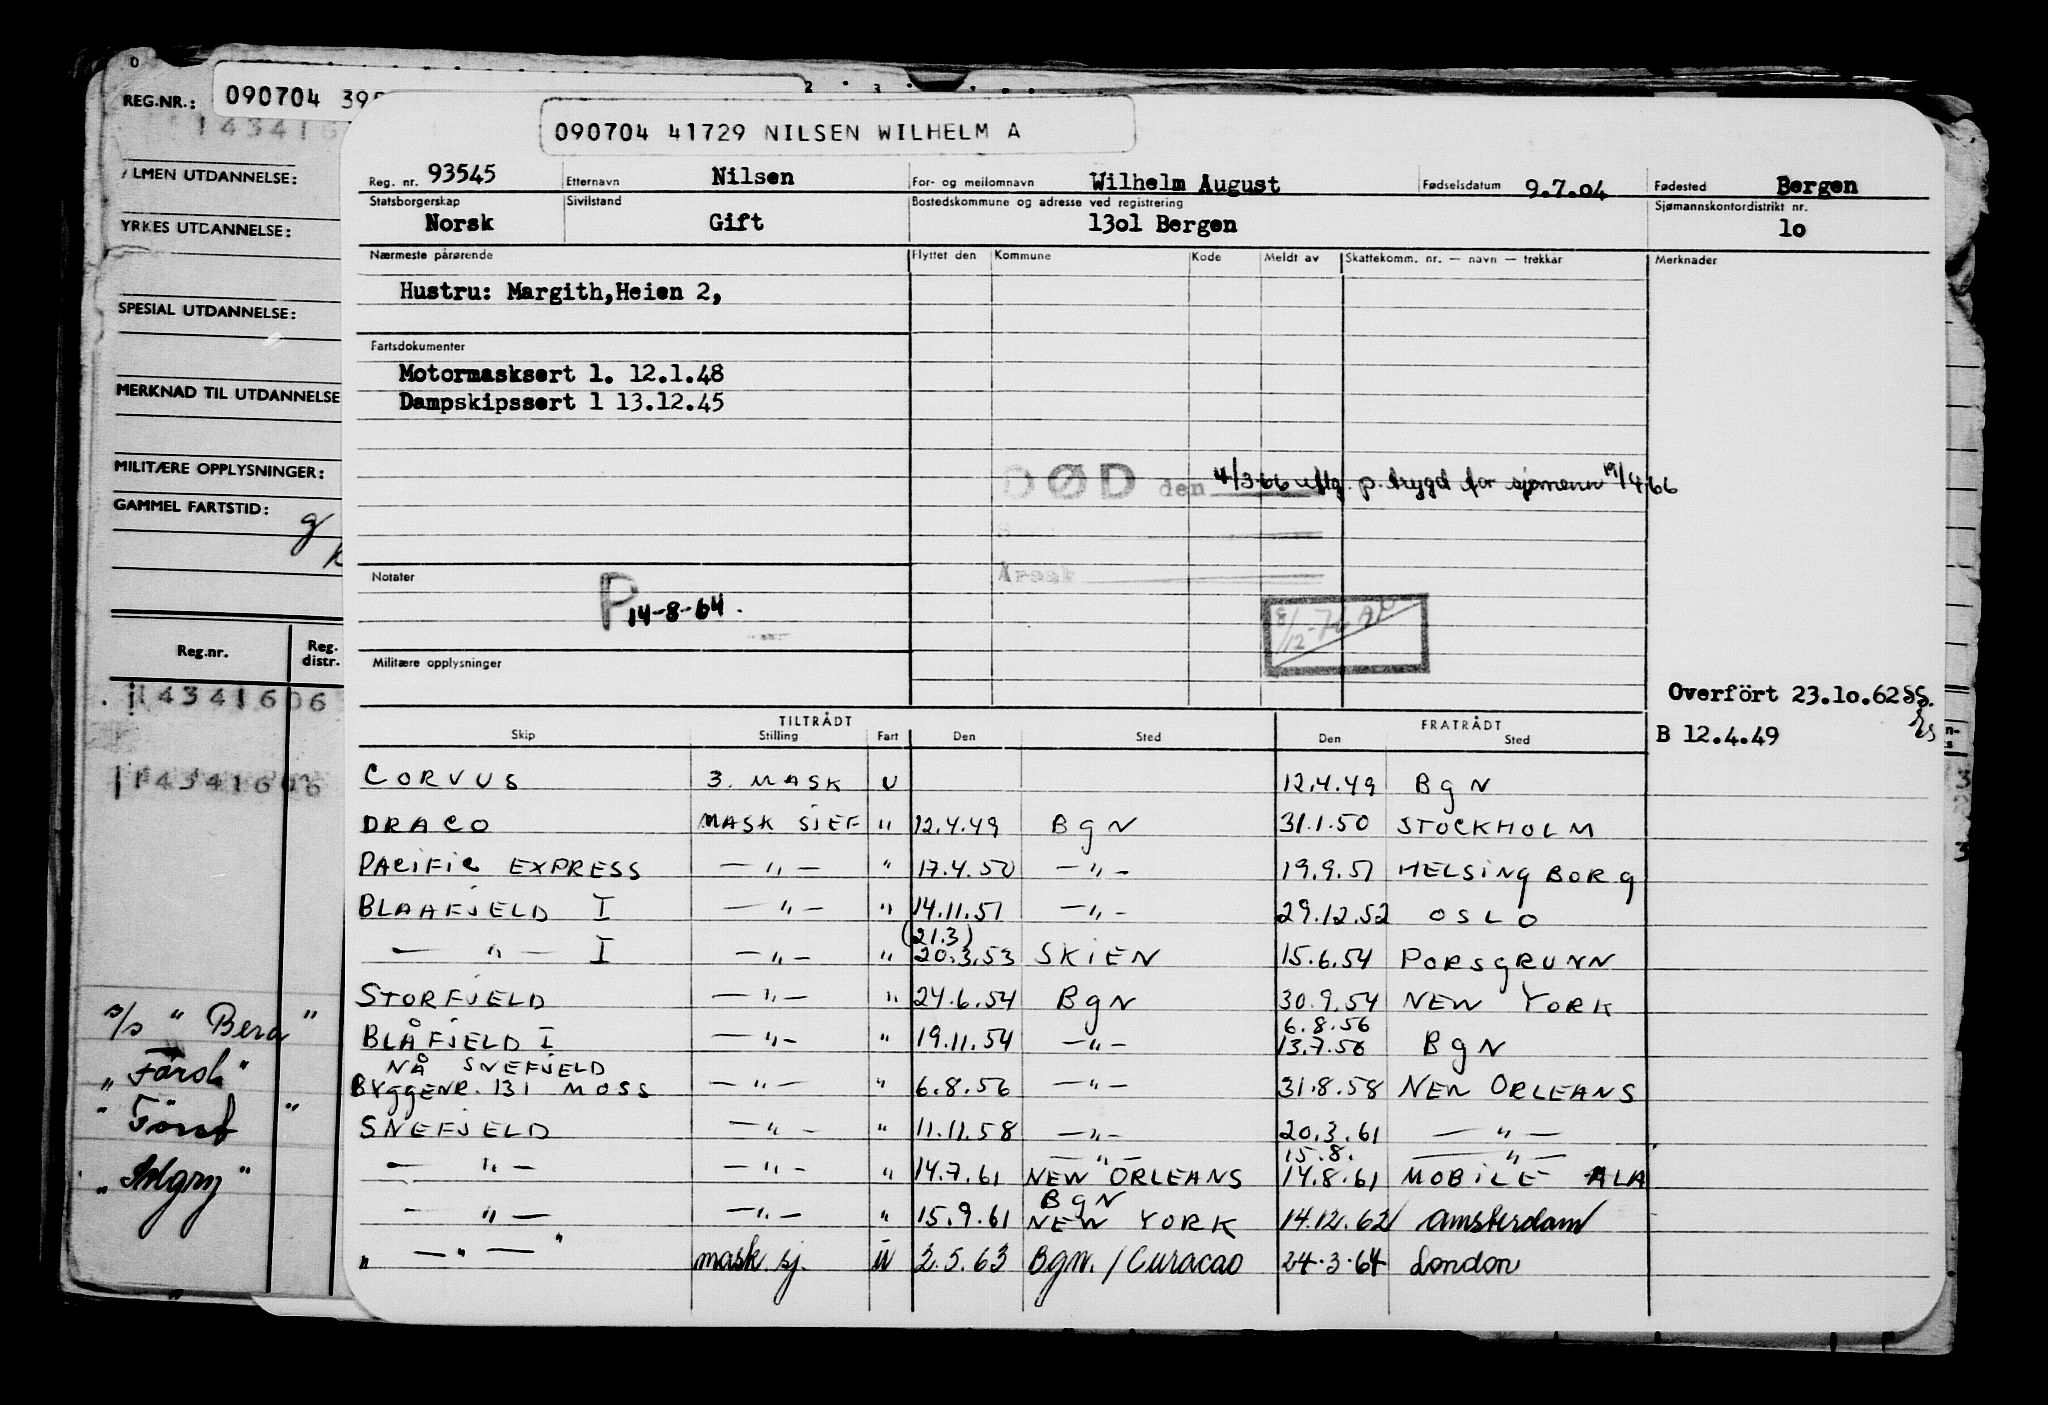 REG.NR.: 090704 395
143416
ALMEN UTDANNELSE:
YRKES UTDANNELSE:
SPESIAL UTDANNELSE:
MERKNAD TIL UTDANNELSE
MILITÆRE OPPLYSNINGER:
GAMMEL FARTSTID:
Reg.nr. Reg. distr.
14341606
14341606
s/s " Bera "
" Färsk "
" Först "
" Adgry "
090704 41729 NILSEN WILHELM A
Reg. nr. 93545 Etternavn Nilsen For- og mellomnavn Wilhelm August Fødselsdatum 9.7.04 Fødested Bergen
Statsborgerskap Sivilstand Bostedskommune og adresse ved registrering Sjømannskontordistrikt nr.
Norsk Gift 13o1 Bergen 1o
Nærmeste pårørende Flyttet den Kommune Kode Meldt av Skattekomm. nr. — navn — trekkar Merknader
Hustru: Margith,Heien 2,
Fartsdokumenter
Motormasksert 1. 12.1.48
Dampskipssert 1 13.12.45
DØD den 4/3-66 iflg. p. trygd for sjømenn 19/4-66
Årsak
Notater
P 14-8-64.
8/12-76
Militære opplysninger
Overfört 23.1o.62
B 12.4.49
TILTRÅDT FRATRÅDT
Skip Stilling Fart Den Sted Den Sted
CORVUS 3. MASK U 12.4.49 BgN
DRACO MASK SJEF " 12.4.49 BgN 31.1.50 STOCKHOLM
PACIFIC EXPRESS — " — " 17.4.50 — " — 19.9.51 HELSINGBORG
BLAAFJELD I — " — " 14.11.51 — " — 29.12.52 OSLO
(21.3)
— " — I — " — " 20.3.53 SKIEN 15.6.54 PORSGRUNN
STORFJELD — " — " 24.6.54 BgN 30.9.54 NEW YORK
6.8.56
BLÅFJELD I — " — " 19.11.54 — " — 13.7.56 BgN
NÅ SNEFJELD
BYGGENR. 131 MOSS — " — " 6.8.56 — " — 31.8.58 NEW ORLEANS
SNEFJELD — " — " 11.11.58 — " — 20.3.61 — " —
— " — 15.8. — " —
— " — — " — " 14.7.61 NEW ORLEANS 14.8.61 MOBILE ALA
BgN
— " — — " — " 15.9.61 NEW YORK 14.12.62 Amsterdam
" — " — " mask sj. u 2.5.63 Bgn. / Curacao 24.3.64 London